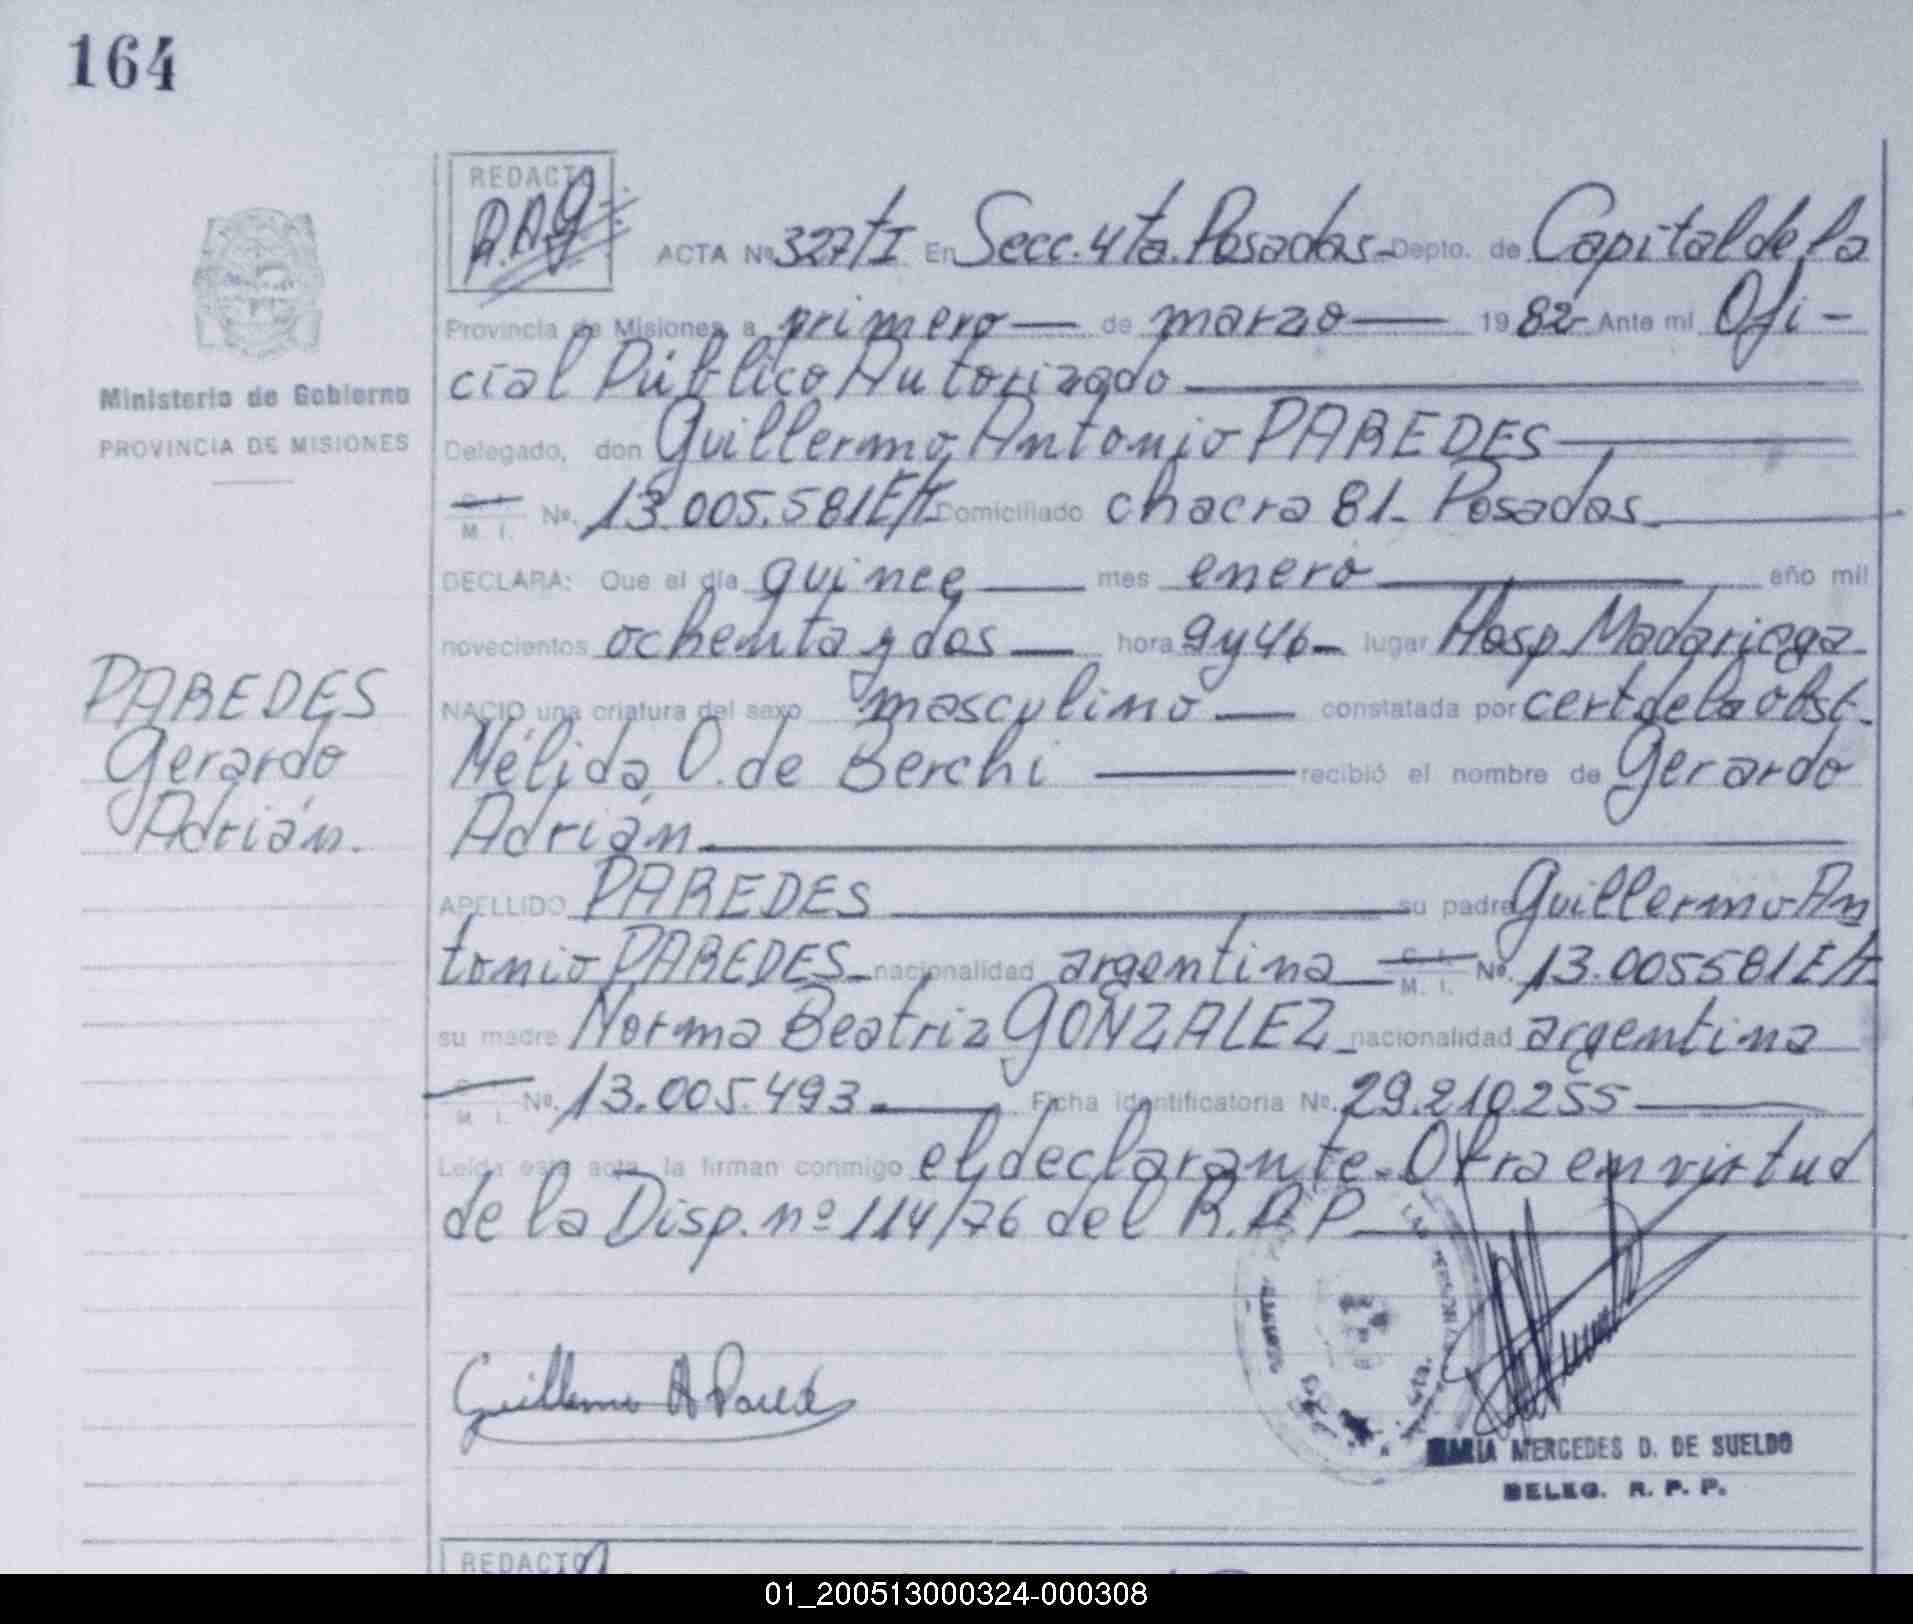 164
REDACTO
R.A.G.
ACTA Nº 327/T I En Secc. 4ta. Posadas - Depto. de Capital de la
Provincia de Misiones, a primero — de marzo — 19 82 - Ante mi Ofi -
cial Público Autorizado
Ministerio de Gobierno
PROVINCIA DE MISIONES
Delegado, don Guillermo Antonio PAREDES
M. I. Nº. 13.005.581 E/t Domiciliado chacra 81 - Posadas
DECLARA: Que el día quince mes enero año mil
novecientos ochenta y dos — hora 9 y 46 - lugar Hosp. Madariaga
NACIO una criatura del sexo masculino — constatada por cert de la obst.
Nélida O. de Berchi — recibió el nombre de Gerardo
Adrián
PAREDES
Gerardo
Adrián.
APELLIDO PAREDES su padre Guillermo An
tonio PAREDES - nacionalidad argentina — C. I. M. I. Nº. 13.005581 E/t
su madre Norma Beatriz GONZALEZ - nacionalidad argentina
M. I. Nº. 13.005.493 Ficha identificatoria Nº. 29.210.255
Leída este acta, la firman conmigo el declarante. Ofra en virtud
de la Disp. nº 114/76 del R.P.P.
Guillermo A Paredes
MARIA MERCEDES D. DE SUELDO
DELEG. R. P. P.
REDACTO
01_200513000324-000308